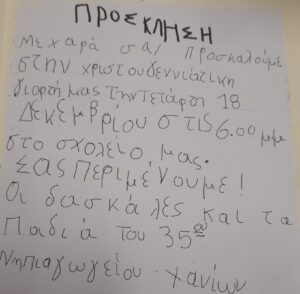 ΠΡΟΣΚΛΗΣΗ
Με χαρά σας προσκαλούμε
στην χριστουδεννιάτικη
γιορτή μας την Τετάρτη 18
Δεκεμβρίου στις 6.00 μμ
στο σχολείο μας.
Σας περιμένουμε!
Οι δασκάλες και τα
Παδιά του 35ου
Νηπιαγωγείου Χανίων